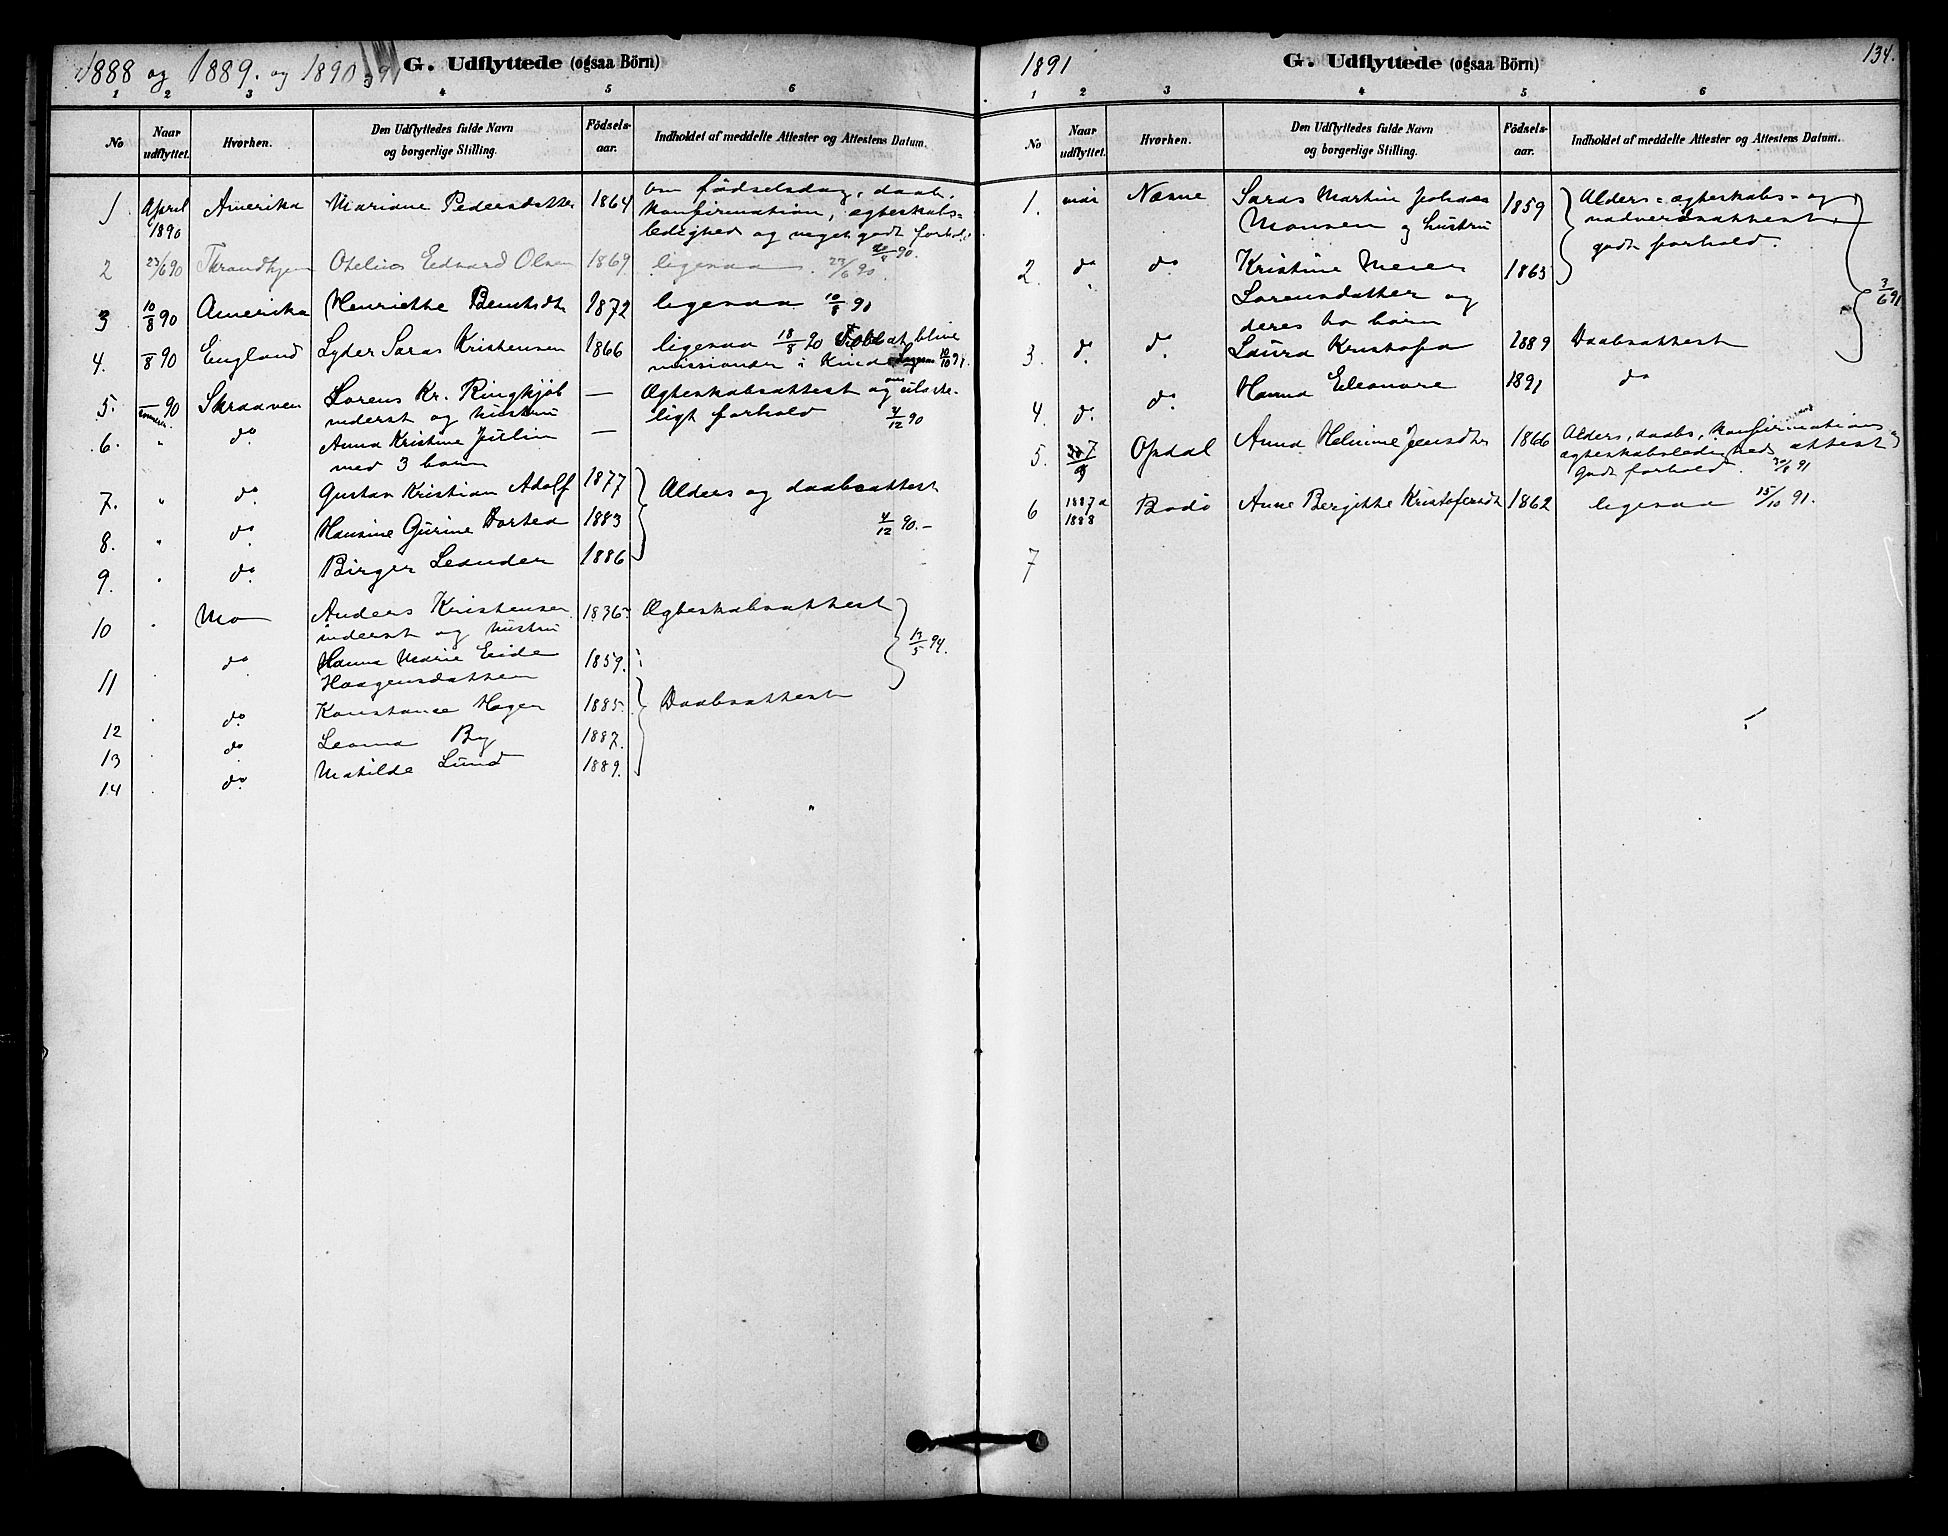 1888 og 1889. og 1890
G. Udflyttede (ogsaa Börn)
1 2 3 4 5 6
No
Naar udflyttet.
Hvorhen.
Den Udflyttedes fulde Navn og borgerlige Stilling.
Födsels-aar.
Indholdet af meddelte Attester og Attestens Datum.
1. April 1890 Amerika Mariane Pedersdatter 1864 om födselsdag, daab,
konfirmation, ægteskabs=
ledighed og meget godt forhold
2 23/6 90 Throndhjem Otelius Edvard Olsen 1869 ligesaa 23/6 90.
3 10/8 90 Amerika Henriette Berntsdtr 1872 ligesaa 10/8 90
4. /8 90 England Lyder Saras Kristensen 1866 ligesaa 18/8 90 at blive
missionær i Kina 10/10 91.
5. 90 Skraaven Lorens Kr. Ringkjöb — Ægteskabsattest og
inderst og hustru ligt forhold 4/12 90
6. " do Anna Kristine Julin —
med 3 barn
7. " do Gustav Kristian Adolf 1877 Alders og daabsattest
8. " do Hansine Gurine Dortea 1883 4/12 90.-
9. " do Birger Leander 1886
10 " Mo Anders Kristensen 1836 Ægteskabsattest
inderst og hustru
11 " do Hanna Marie Eide 1859. 13/5 94.
Haagensdatter
12 " do Konstanse Hagen 1885. Daabsattest
13 " do Leona By 1887.
14 do Matilde Lund 1889.
1891
G. Udflyttede (ogsaa Börn)
134.
1 2 3 4 5 6
No
Naar udflyttet.
Hvorhen.
Den Udflyttedes fulde Navn og borgerlige Stilling.
Födsels-aar.
Indholdet af meddelte Attester og Attestens Datum.
1. mai Næsne Saras Martin Johan 1859 Alders= ægteskabs= og
Monsen og hustru nadverdsattest,
godt forhold.
2. do do Kristine 1863
Lorensdatter og 3/6 91
deres to börn
3. do do Laura Kristofa 1889 Daabsattest
4. do do Hanna Eleonore 1891 do
5. Opdal Anna Helmine Jensdtr 1866 Alders, daabs, konfirmations
ægteskabsledigheds attest
godt forhold. 30/6 91
6 1887 a 1888 Bodö Anne Bergitte Kristofersdtr 1862 ligesaa 15/10 91.
7